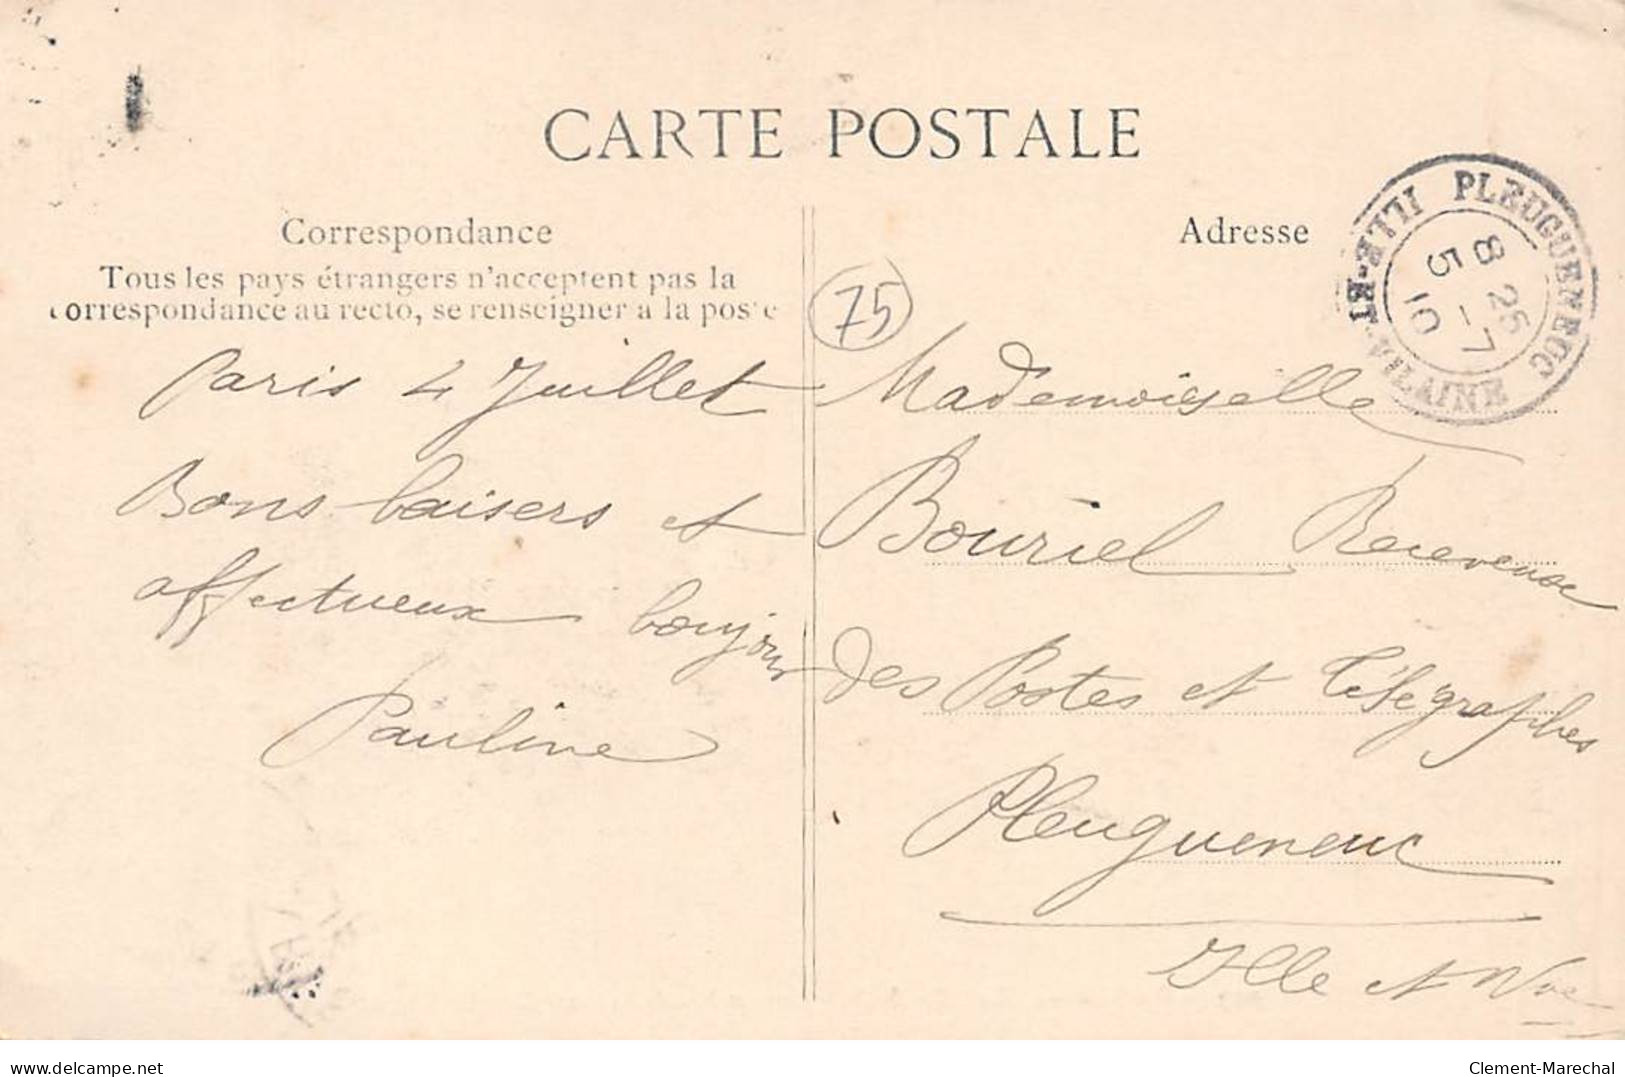 CARTE POSTALE
Correspondance
Tous les pays étrangers n'acceptent pas la
correspondance au recto, se renseigner a la poste
Paris 4 Juillet
Bons baisers et
affectueux bonjour
Pauline
75
Adresse
PLEUGUENEUC
ILLE-ET-VILAINE
8 25
5 -7
10
Mademoiselle
Bouriel Receveuse
des Postes et Télégraphes
Pleugueneuc
Ille et Vne
delcampe.net
Clement-Marechal